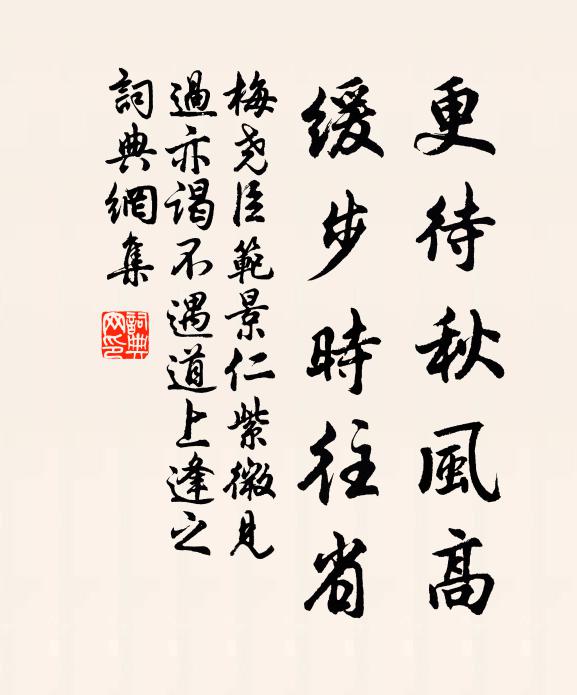 更待秋風高
緩步時往省
梅堯臣範景仁紫微見
過亦謁不遇道上逢之
詞典網集
詞典
网印